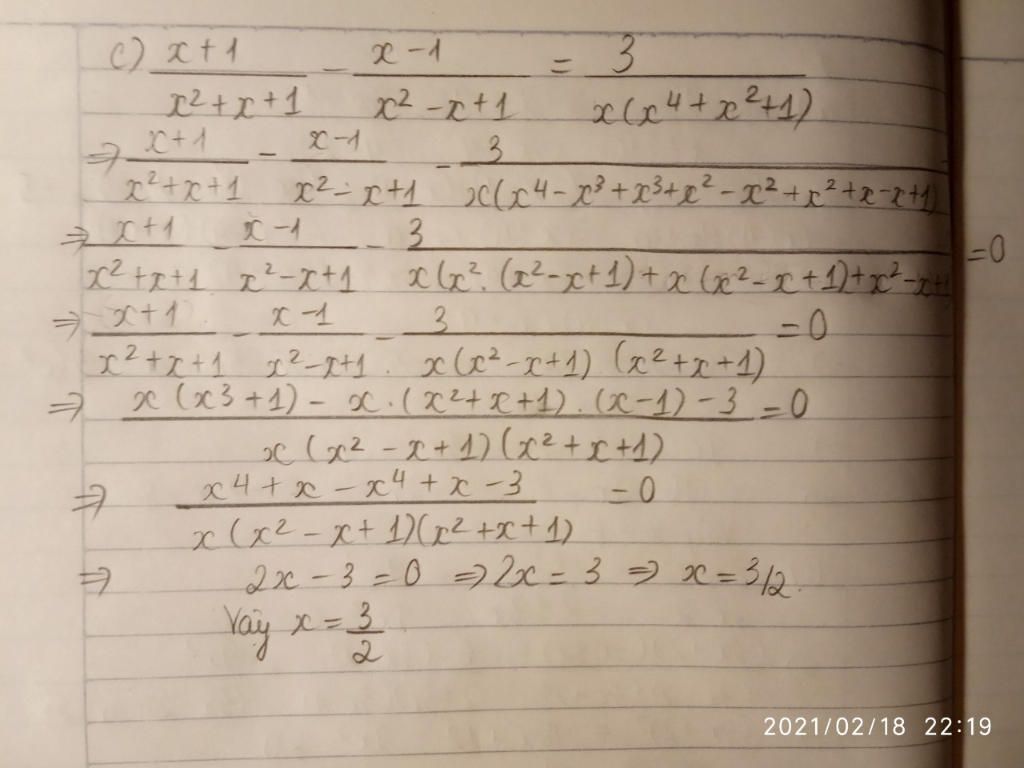 c) (x+1)/(x²+x+1) - (x-1)/(x²-x+1) = 3/(x(x⁴+x²+1))
⇒ (x+1)/(x²+x+1) - (x-1)/(x²-x+1) - 3/(x(x⁴-x³+x³+x²-x²+x²+x-x+1))
⇒ (x+1)/(x²+x+1) - (x-1)/(x²-x+1) - 3/(x(x².(x²-x+1)+x(x²-x+1)+x²-x+1) = 0
⇒ (x+1)/(x²+x+1) - (x-1)/(x²-x+1) - 3/(x(x²-x+1)(x²+x+1)) = 0
⇒ (x(x3+1) - x.(x²+x+1).(x-1) - 3)/(x(x²-x+1)(x²+x+1)) = 0
⇒ (x4+x-x4+x-3)/(x(x²-x+1)(x²+x+1)) = 0
⇒ 2x-3=0 ⇒ 2x=3 ⇒ x=3/2.
Vậy x = 3/2
2021/02/18 22:19